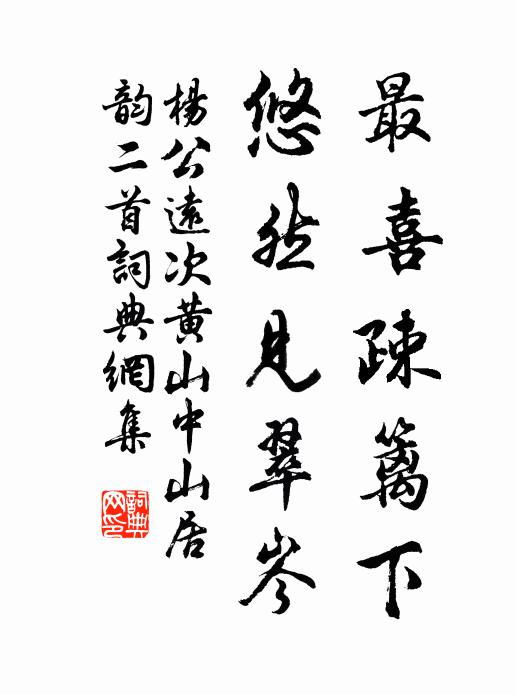 最喜疎籬下
悠然見翠岑
楊公遠次黃山中山居
韵二首詞典網集
詞典網印